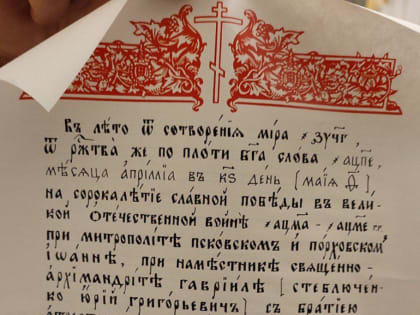 Въ лѣто ѿ сотворе́нїѧ мі́ра ҂зуч҃г
ѿ рж҃тва же по плоти бг҃а слова ҂ацп҃е
мѣсѧца апрїллїа въ к҃ѕ день [маїѧ ѳ҃]
на сорокалѣтїе славной побѣды въ вели-
кой Отечественной войнѣ ҂ацма - ҂ацме гг.
при митрополїтѣ псковскомъ и порховскомъ
іѡаннѣ, при намѣстникѣ священно-
архімандрітѣ гаврїилѣ [стеблючен-
ко юрїй григорьевичъ] съ братїею